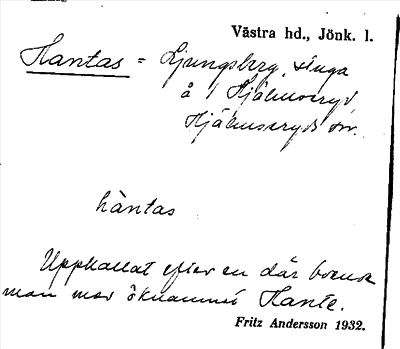 Västra hd., Jönk. l.
Hantas = Ljungsberg, stuga
å / Hjälmseryd,
Hjälmseryds sn.
hàntas
Uppkallat efter en där boende
man med öknamnet Hante.
Fritz Andersson 1932.